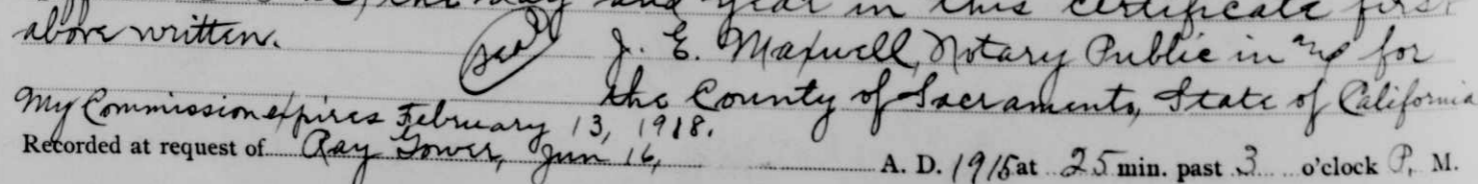 the day and year in this certificate first
above written.
(Seal) J. E. Maxwell, Notary Public in and for
the County of Sacramento, State of California
My Commission expires February 13, 1918.
Recorded at request of Ray Gower, Jun 16, A. D. 1915 at 25 min. past 3 o'clock P. M.